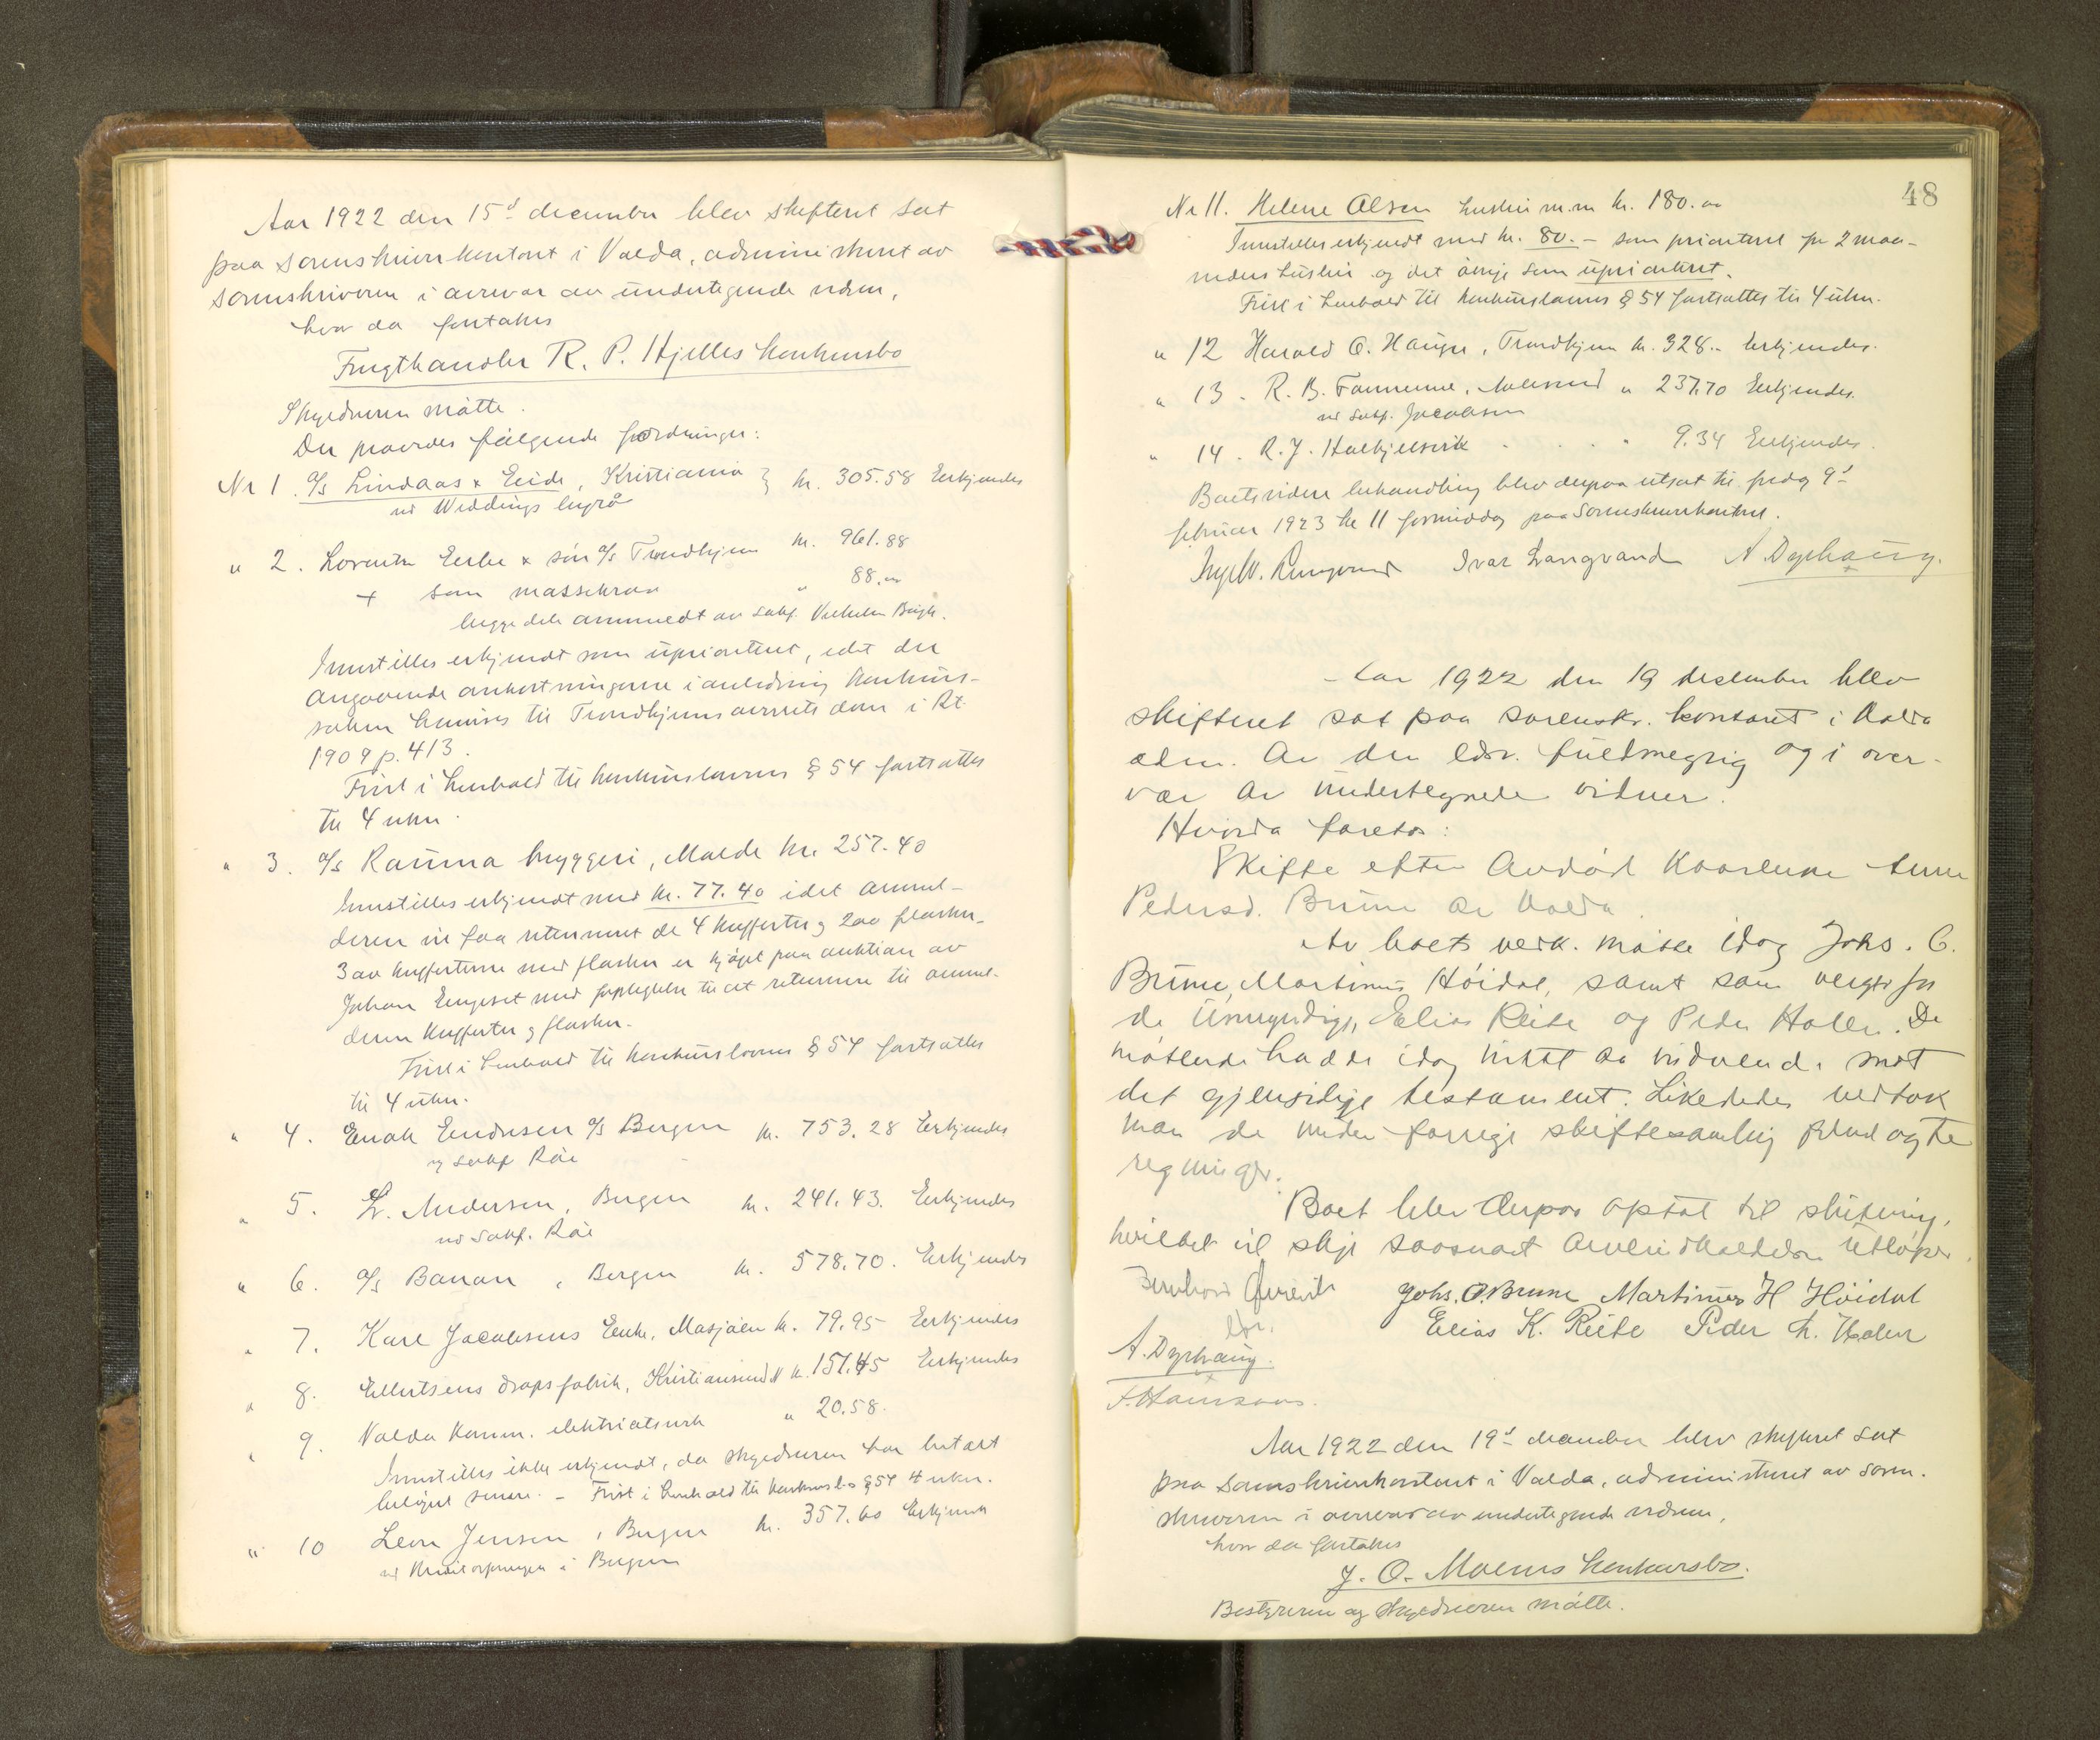 Aar 1922 den 15d december blev skifteret sat
paa sorenskriverkontoret i Volda, administreret av
sorenskriveren i overvær av undertegnede vidner,
hvor da foretokes
Frugthandler R. P. Hjelles konkursbo
Skyldneren møtte.
Der prøvedes følgende fordringer:
Nr 1. A/S Lindaas & Eide, Kristiania kr. 305.58 Erkjendes
ved Weddings byrå
" 2. Lorentz Erbe & søn A/S Trondhjem kr. 961.88
+ som massekrav " 88.00
begge dele anmeldt av sakf. Vilhelm Bugge.
Innstilles erkjendt som uprioritert, idet der
angaaende omkostningerne i anledning konkurs-
saken henvises til Trondhjems overrets dom i Rt.
1909 p. 413.
Frist i henhold til konkurslovens § 54 fortsattes
til 4 uker.
" 3. A/S Rauma bryggeri, Molde kr. 257.40
Innstilles erkjendt med kr. 77.40 idet anmel-
deren vil faa returnert de 4 kufferter og 200 flasker.
3 av kufferterne med flasker er kjøpt paa auktion av
Johan Engeset med forpligtelse til at returnere til anmel-
deren kufferter og flasker.
Frist i henhold til konkurslovens § 54 fortsattes
til 4 uker.
" 4. Enok Endresen A/S Bergen kr. 753.28 Erkjendes
v/ sakf. Råe
" 5. L. Andersen, Bergen kr. 241.43. Erkjendes
ved sakf. Råe
" 6. A/S Banan, Bergen kr. 578.70. Erkjendes
" 7. Karl Jacobsens Enke, Mosjøen kr. 79.95 Erkjendes
" 8. Ellertsens dropsfabrik, Kristiansund N kr. 151.45 Erkjendes
" 9. Volda komm. elektricitetsverk " 20.58.
Innstilles ikke erkjendt, da skyldneren har betalt
beløpet senere. - Frist i henhold til konkursl. § 54 4 uker.
" 10 Leon Jensen, Bergen kr. 357.60 Erkjendes
ved Kreditorforeningen i Bergen
48
Nr 11. Helene Olsen husleie m.m kr. 180.00
Innstilles erkjendt med kr. 80.- som prioriteret for 2 maa-
neders husleie og det øvrige som uprioriteret.
Frist i henhold til konkurslovens § 54 fortsattes til 4 uker.
" 12 Harald O. Haugen, Trondhjem kr. 328.- Erkjendes.
" 13 - R. B. , Aalesund " 237.70 Erkjendes.
ved sakf. Jacobsen
" 14 - R. J. Halkjelsvik " 9.34 Erkjendes.
Boets videre behandling blev derpaa utsat til fredag 9d
februar 1923 kl 11 formiddag paa sorenskriverkontoret.
Ivar Langvand A. Dyrhaug.
Aar 1922 den 19 desember blev
skifteret sat paa sorenskr. kontoret i Volda
adm. av den edsv. fuldmegtig og i over-
vær av undertegnede vidner.
Hvorda foretos:
Skifte efter avdød Kaarlune Anne
Pedersd. Brune av Volda.
Av boets vedk. møtte idag Johs. O.
Brune, Martinus Høidal, samt som verger for
de umyndige, Elias Reite og Peder Holen. De
møtende hadde idag intet at indvende mot
det gjensidige testament. Likeledes vedtok
man de under forrige skiftesamling fremlagte
regninger.
Boet blev derpaa optat til slutning,
hvilket vil skje saasnart utløper.
Johs. O. Brune Martinus H Høidal
edsv.
Elias K. Reite Peder L. Holen
A. Dyrhaug.
Aar 1922 den 19d december blev skifteret sat
paa sorenskriverkontoret i Volda, administreret av soren-
skriveren i overvær av undertegnede vidner,
hvor da foretokes
J. O. Moens konkursbo.
Bestyreren og skyldneren møtte.